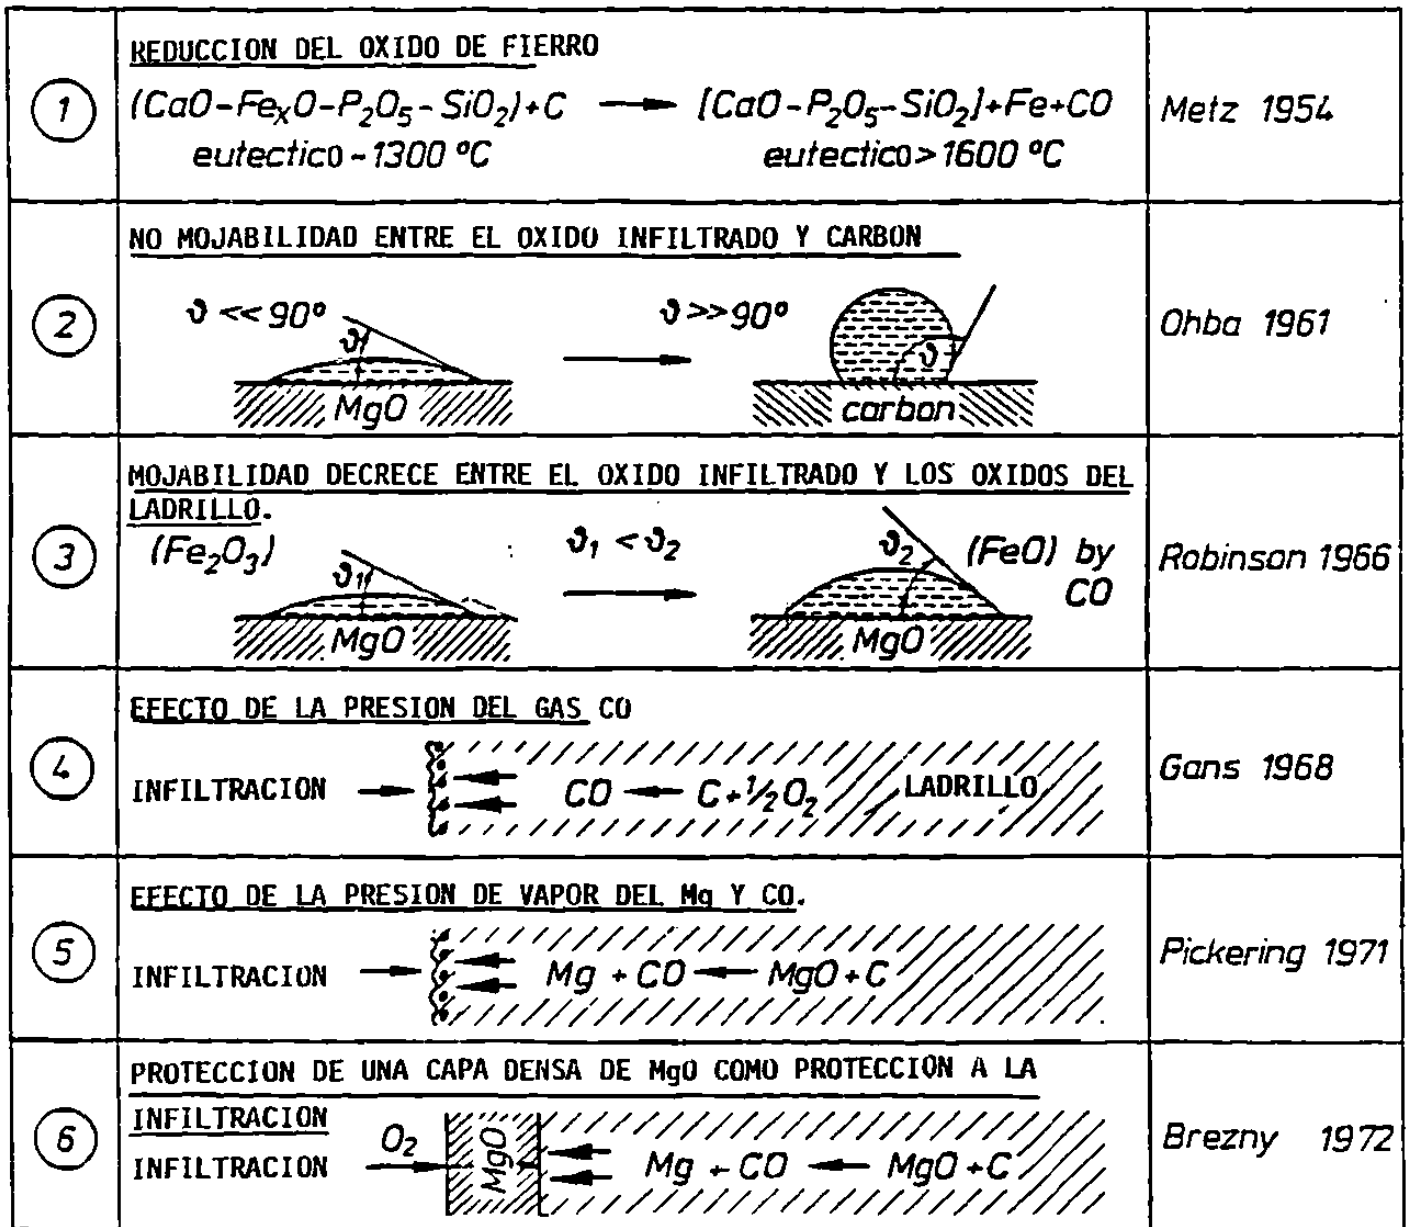 1
REDUCCION DEL OXIDO DE FIERRO
(CaO-FexO-P2O5-SiO2)+C → [CaO-P2O5-SiO2]+Fe+CO
eutectico ~ 1300 ºC eutectico > 1600 ºC
Metz 1954
2
NO MOJABILIDAD ENTRE EL OXIDO INFILTRADO Y CARBON
ϑ << 90º ϑ >> 90º
ϑ ϑ
MgO carbon
Ohba 1961
3
MOJABILIDAD DECRECE ENTRE EL OXIDO INFILTRADO Y LOS OXIDOS DEL
LADRILLO.
(Fe2O3) ϑ1 < ϑ2 (FeO) by
CO
ϑ1 ϑ2
MgO MgO
Robinson 1966
4
EFECTO DE LA PRESION DEL GAS CO
INFILTRACION → CO ← C+½O2 LADRILLO
Gans 1968
5
EFECTO DE LA PRESION DE VAPOR DEL Mg Y CO.
INFILTRACION → Mg + CO ← MgO+C
Pickering 1971
6
PROTECCION DE UNA CAPA DENSA DE MgO COMO PROTECCION A LA
INFILTRACION
INFILTRACION O2 → MgO Mg + CO ← MgO+C
Brezny 1972